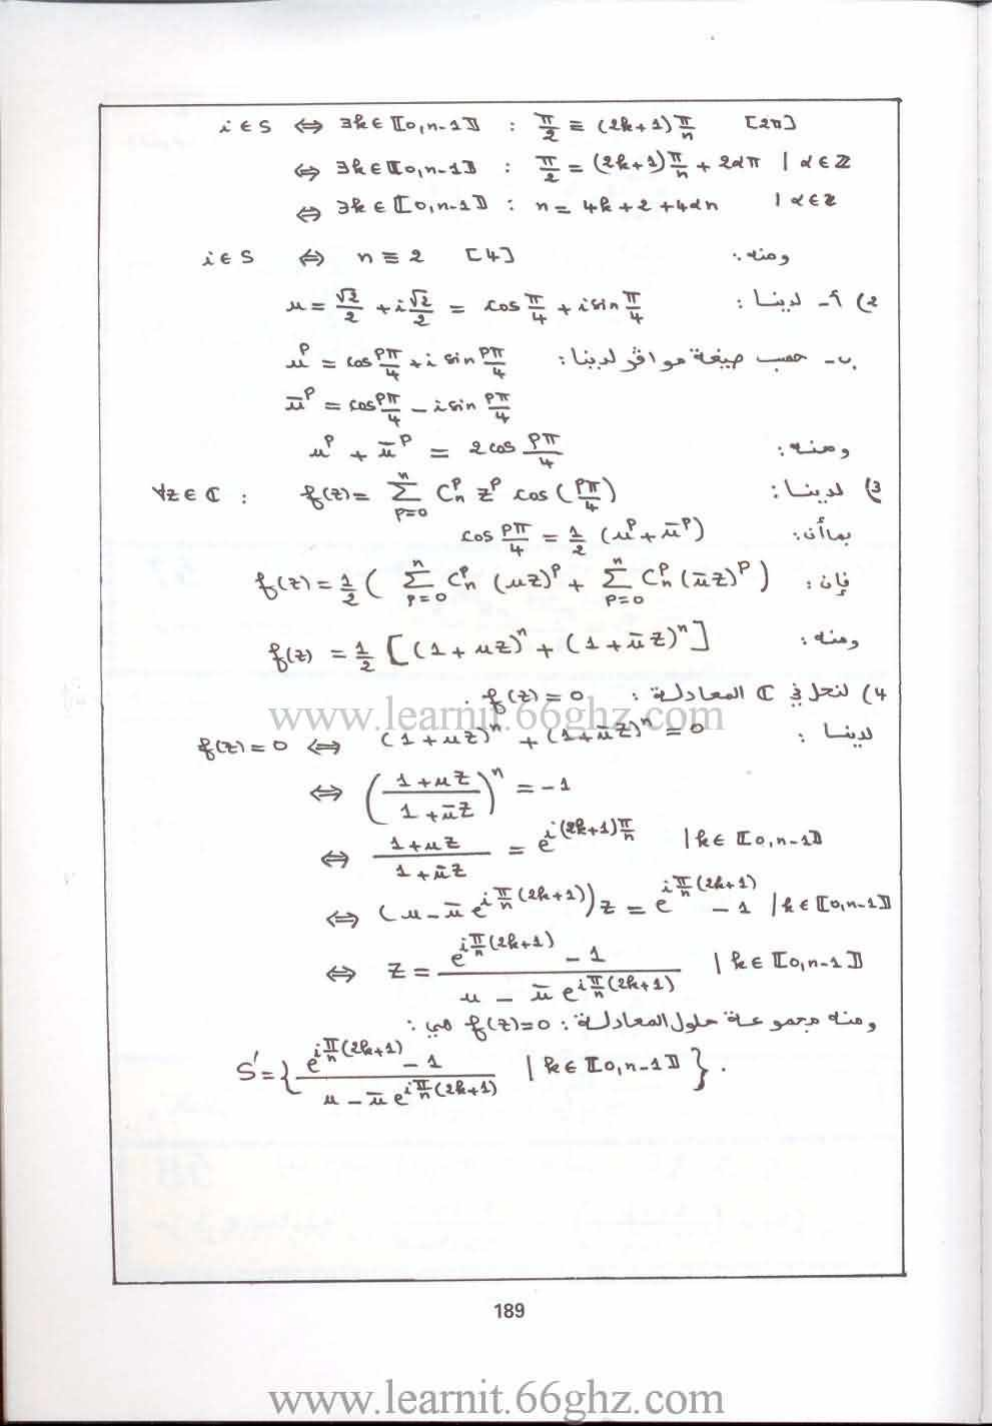 i ∈ S ⇔ ∃k ∈ ⟦0,n-1⟧ : π/2 ≡ (2k+1)π/n [2π]
⇔ ∃k ∈ ⟦0,n-1⟧ : π/2 = (2k+1)π/n + 2απ | α ∈ ℤ
⇔ ∃k ∈ ⟦0,n-1⟧ : n = 4k + 2 + 4αn | α ∈ ℤ
ومنه : i ∈ S ⇔ n ≡ 2 [4]
2) أ- لدينا : u = √2/2 + i√2/2 = cos π/4 + i sin π/4
ب- حسب صيغة موافر لدينا : u^p = cos pπ/4 + i sin pπ/4
ū^p = cos pπ/4 - i sin pπ/4
ومنه : u^p + ū^p = 2 cos pπ/4
3) لدينا : ∀z ∈ ℂ : f(z) = Σ_{p=0}^{n} C_n^p z^p cos(pπ/4)
بما أن : cos pπ/4 = 1/2 (u^p + ū^p)
فإن : f(z) = 1/2 ( Σ_{p=0}^{n} C_n^p (uz)^p + Σ_{p=0}^{n} C_n^p (ūz)^p )
ومنه : f(z) = 1/2 [(1 + uz)^n + (1 + ūz)^n]
4) لنحل في ℂ المعادلة : f(z) = 0 .
لدينا : f(z) = 0 ⇔ (1 + uz)^n + (1 + ūz)^n = 0
⇔ ((1 + uz)/(1 + ūz))^n = -1
⇔ (1 + uz)/(1 + ūz) = e^{i(2k+1)π/n} | k ∈ ⟦0,n-1⟧
⇔ (u - ū e^{iπ/n(2k+1)}) z = e^{iπ/n(2k+1)} - 1 | k ∈ ⟦0,n-1⟧
⇔ z = (e^{iπ/n(2k+1)} - 1)/(u - ū e^{iπ/n(2k+1)}) | k ∈ ⟦0,n-1⟧
ومنه مجموعة حلول المعادلة : f(z)=0 هي :
S' = { (e^{iπ/n(2k+1)} - 1)/(u - ū e^{iπ/n(2k+1)}) | k ∈ ⟦0,n-1⟧ } .
189
www.learnit.66ghz.com
www.learnit.66ghz.com